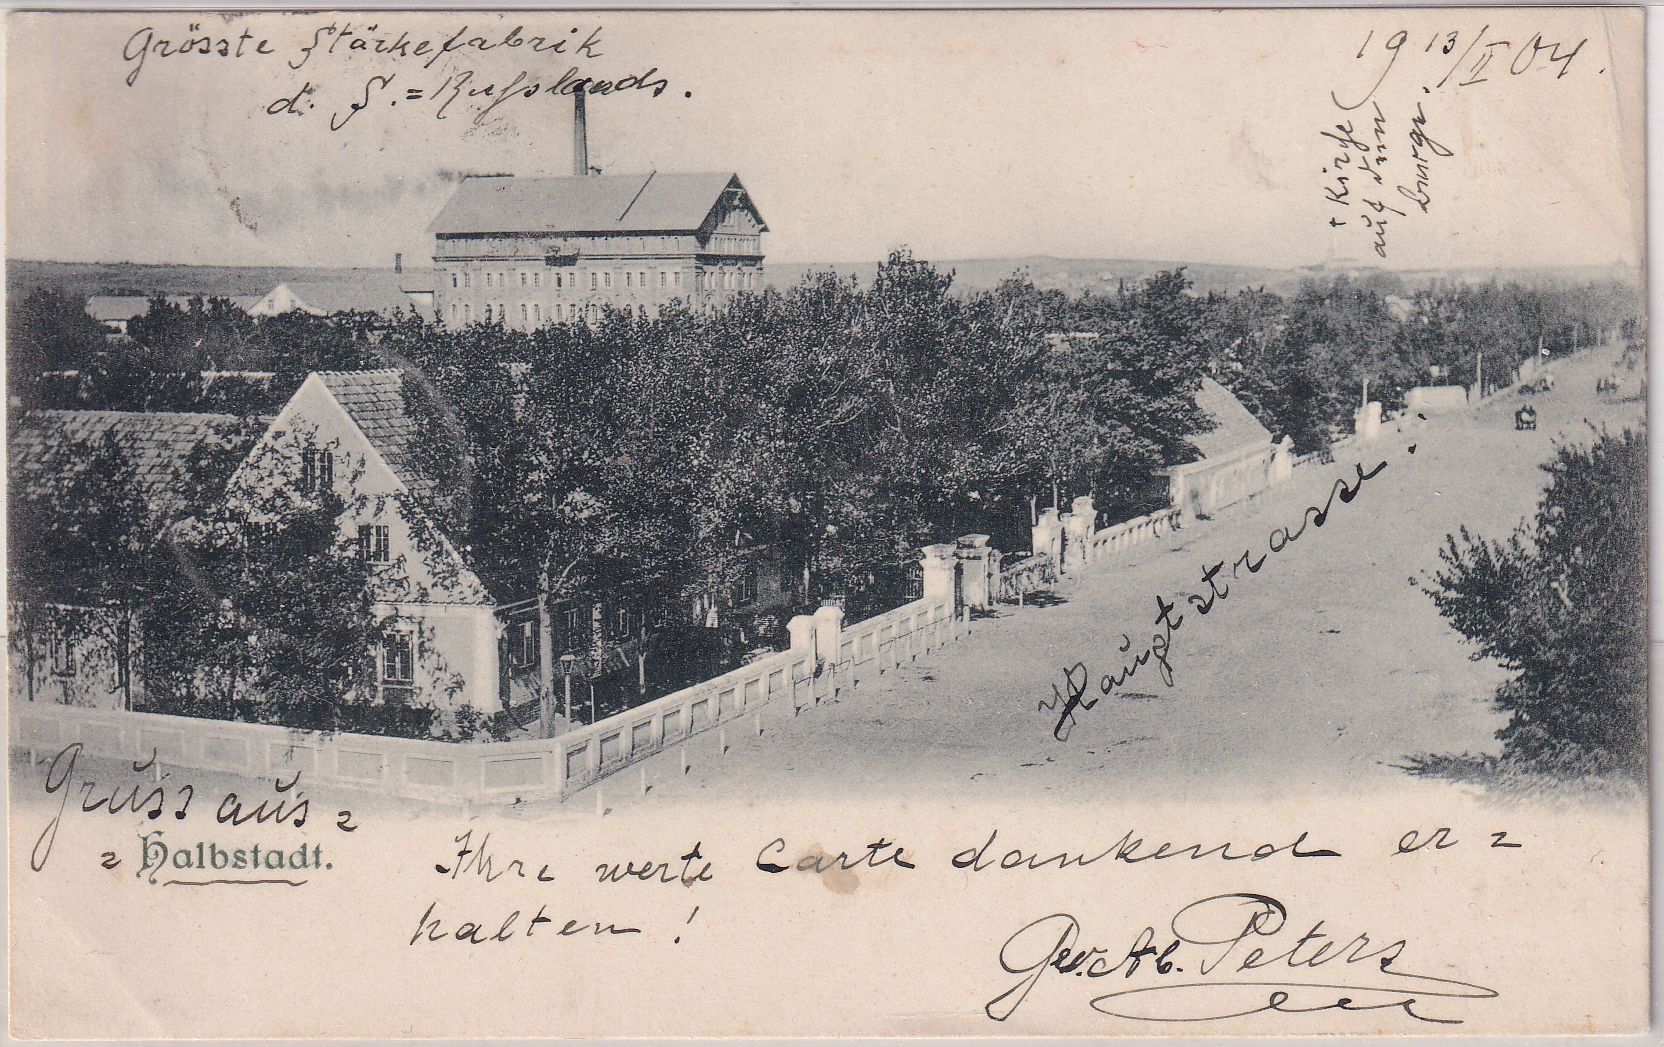 Grösste Stärkefabrik
d. S.=Russlands.
19 13/II 04.
+ Kirche
auf dem
berge.
Hauptstrasse.
Gruss aus =
= Halbstadt.
Ihre werte Carte dankend er =
halten !
Ab. Peters